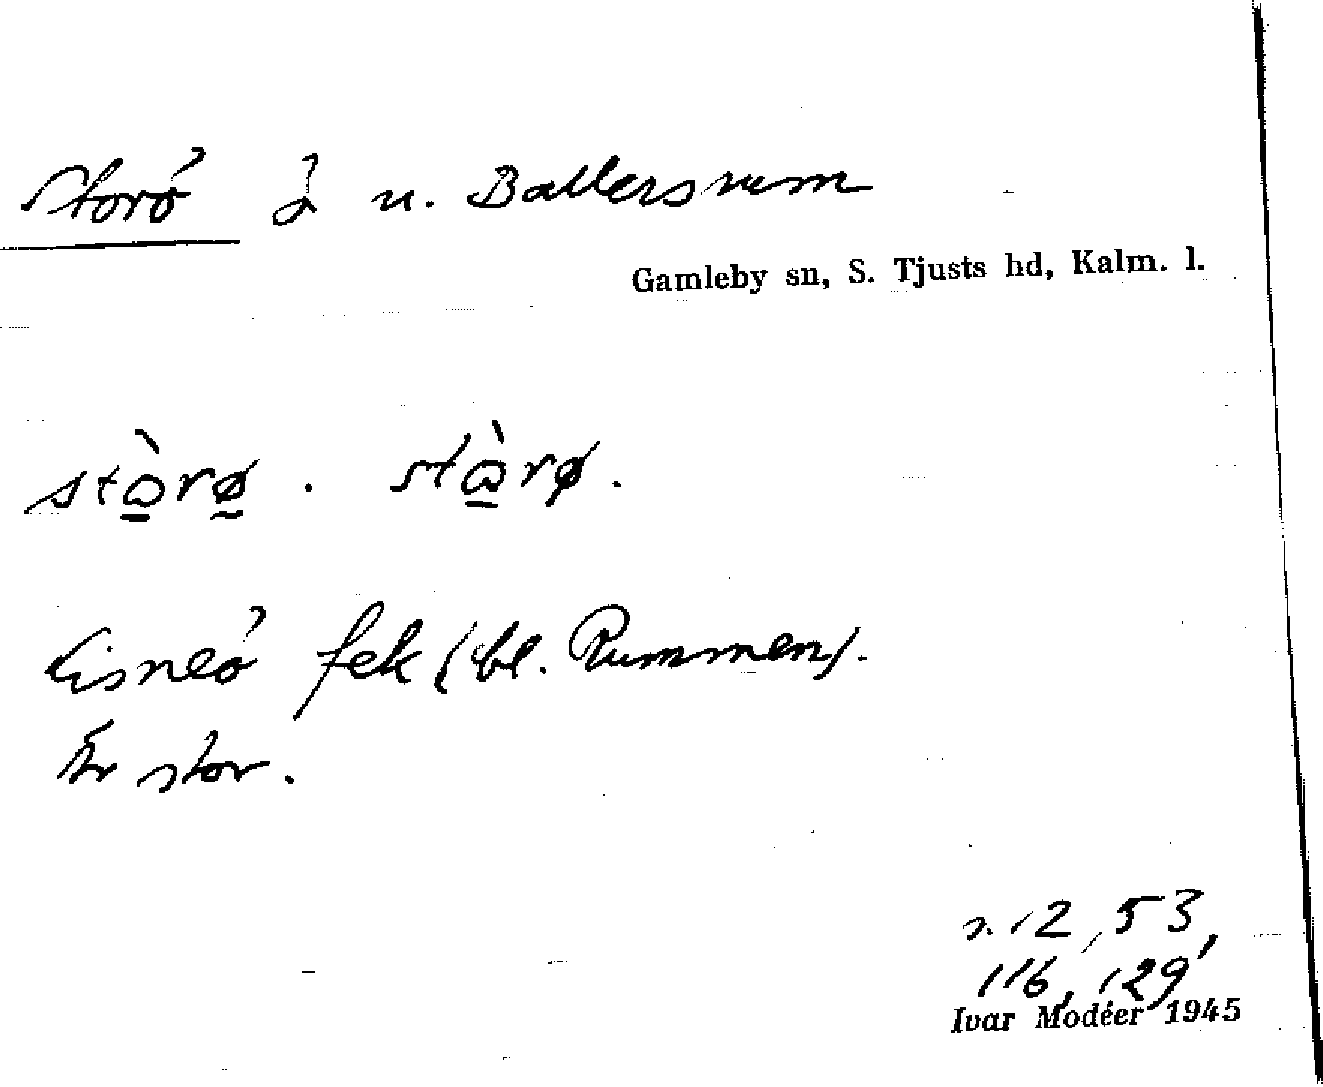 Storö ö u. Ballersrum
Gamleby sn, S. Tjusts hd, Kalm. l.
stòrø . stòrø.
Eisneö fek (bl. Rummen).
Är stor.
s. 12, 53,
116, 129,
Ivar Modéer 1945